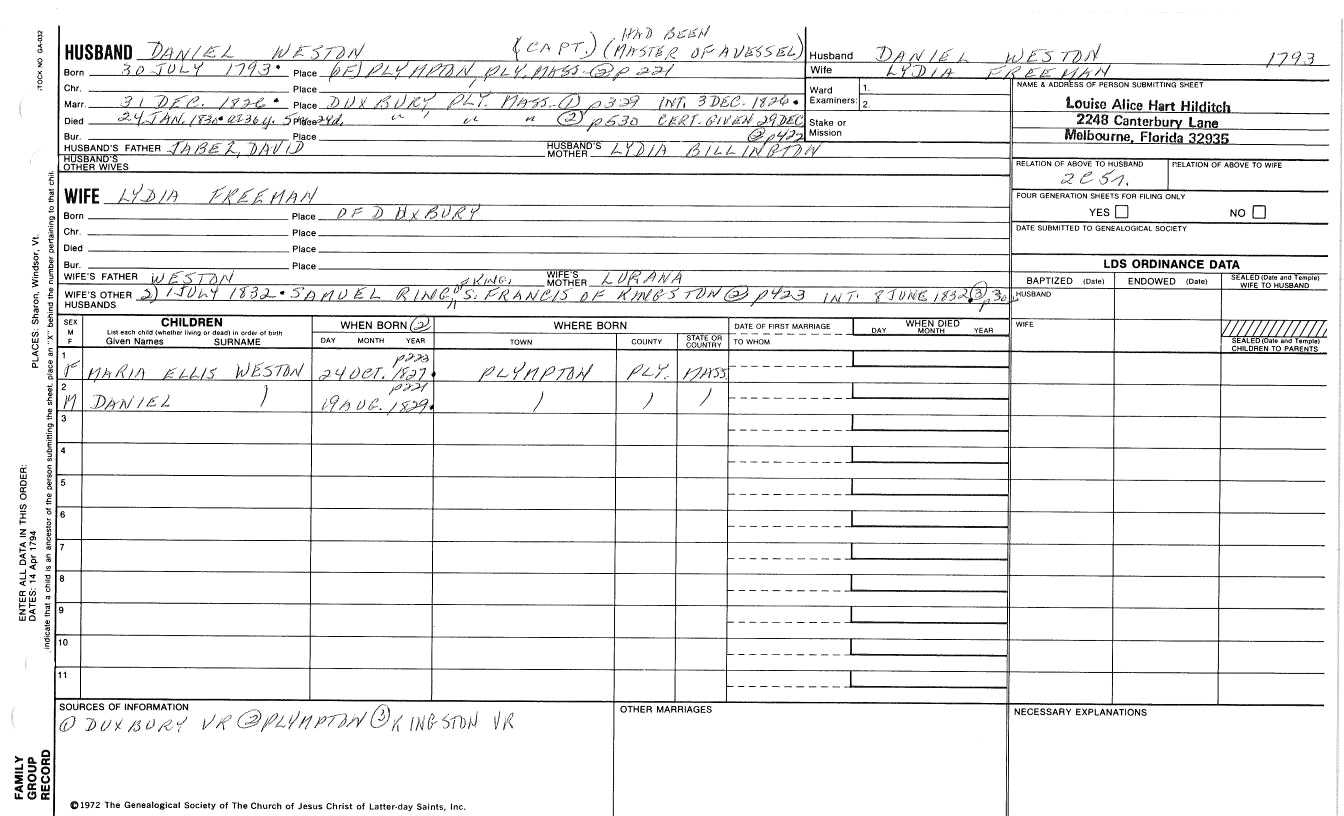 STOCK NO. GA-032
PLACES: Sharon, Windsor, Vt.
ENTER ALL DATA IN THIS ORDER:
DATES: 14 Apr 1794
indicate that a child is an ancestor of the person submitting the sheet, place an "X" behind the number pertaining to that chil
FAMILY GROUP RECORD
HAD BEEN
HUSBAND DANIEL WESTON (CAPT.) (MASTER OF A VESSEL)
Born 30 JULY 1793 Place (OF) PLYMPTON, PLY. MASS ② p 221
Chr. Place
Marr. 31 DEC. 1826 Place DUXBURY, PLY. MASS ① p329 INT. 3 DEC. 1826
Died 24 JAN. 1830 Place " " " ② p530 CERT. GIVEN 29 DEC
Bur. Place ② p422
HUSBAND'S FATHER JABEZ, DAVID HUSBAND'S MOTHER LYDIA BILLINGTON
HUSBAND'S OTHER WIVES
WIFE LYDIA FREEMAN
Born Place OF DUXBURY
Chr. Place
Died Place
Bur. Place
WIFE'S FATHER WESTON WIFE'S MOTHER LURANA
KING,
WIFE'S OTHER HUSBANDS 2) 1 JULY 1832 SAMUEL RING, S. FRANCIS OF KINGSTON ② p423 INT. 8 JUNE 1832 ③ p30
Husband DANIEL WESTON 1793
Wife LYDIA FREEMAN
Ward
Examiners: 1.
2.
Stake or
Mission
NAME & ADDRESS OF PERSON SUBMITTING SHEET
Louise Alice Hart Hilditch
2248 Canterbury Lane
Melbourne, Florida 32935
RELATION OF ABOVE TO HUSBAND RELATION OF ABOVE TO WIFE
FOUR GENERATION SHEETS FOR FILING ONLY
YES NO
DATE SUBMITTED TO GENEALOGICAL SOCIETY
LDS ORDINANCE DATA
BAPTIZED (Date) ENDOWED (Date) SEALED (Date and Temple) WIFE TO HUSBAND
HUSBAND
WIFE
SEALED (Date and Temple)
CHILDREN TO PARENTS
SEX M F CHILDREN WHEN BORN ② WHERE BORN DATE OF FIRST MARRIAGE WHEN DIED
List each child (whether living or dead) in order of birth
Given Names SURNAME DAY MONTH YEAR TOWN COUNTY STATE OR COUNTRY TO WHOM DAY MONTH YEAR
p223
1 F MARIA ELLIS WESTON 24 OCT. 1827 PLYMPTON PLY. MASS
p221
2 M DANIEL ) 19 AUG. 1829 ) ) )
3
4
5
6
7
8
9
10
11
SOURCES OF INFORMATION
① DUXBURY VR ② PLYMPTON ③ KINGSTON VR
OTHER MARRIAGES
NECESSARY EXPLANATIONS
©1972 The Genealogical Society of The Church of Jesus Christ of Latter-day Saints, Inc.